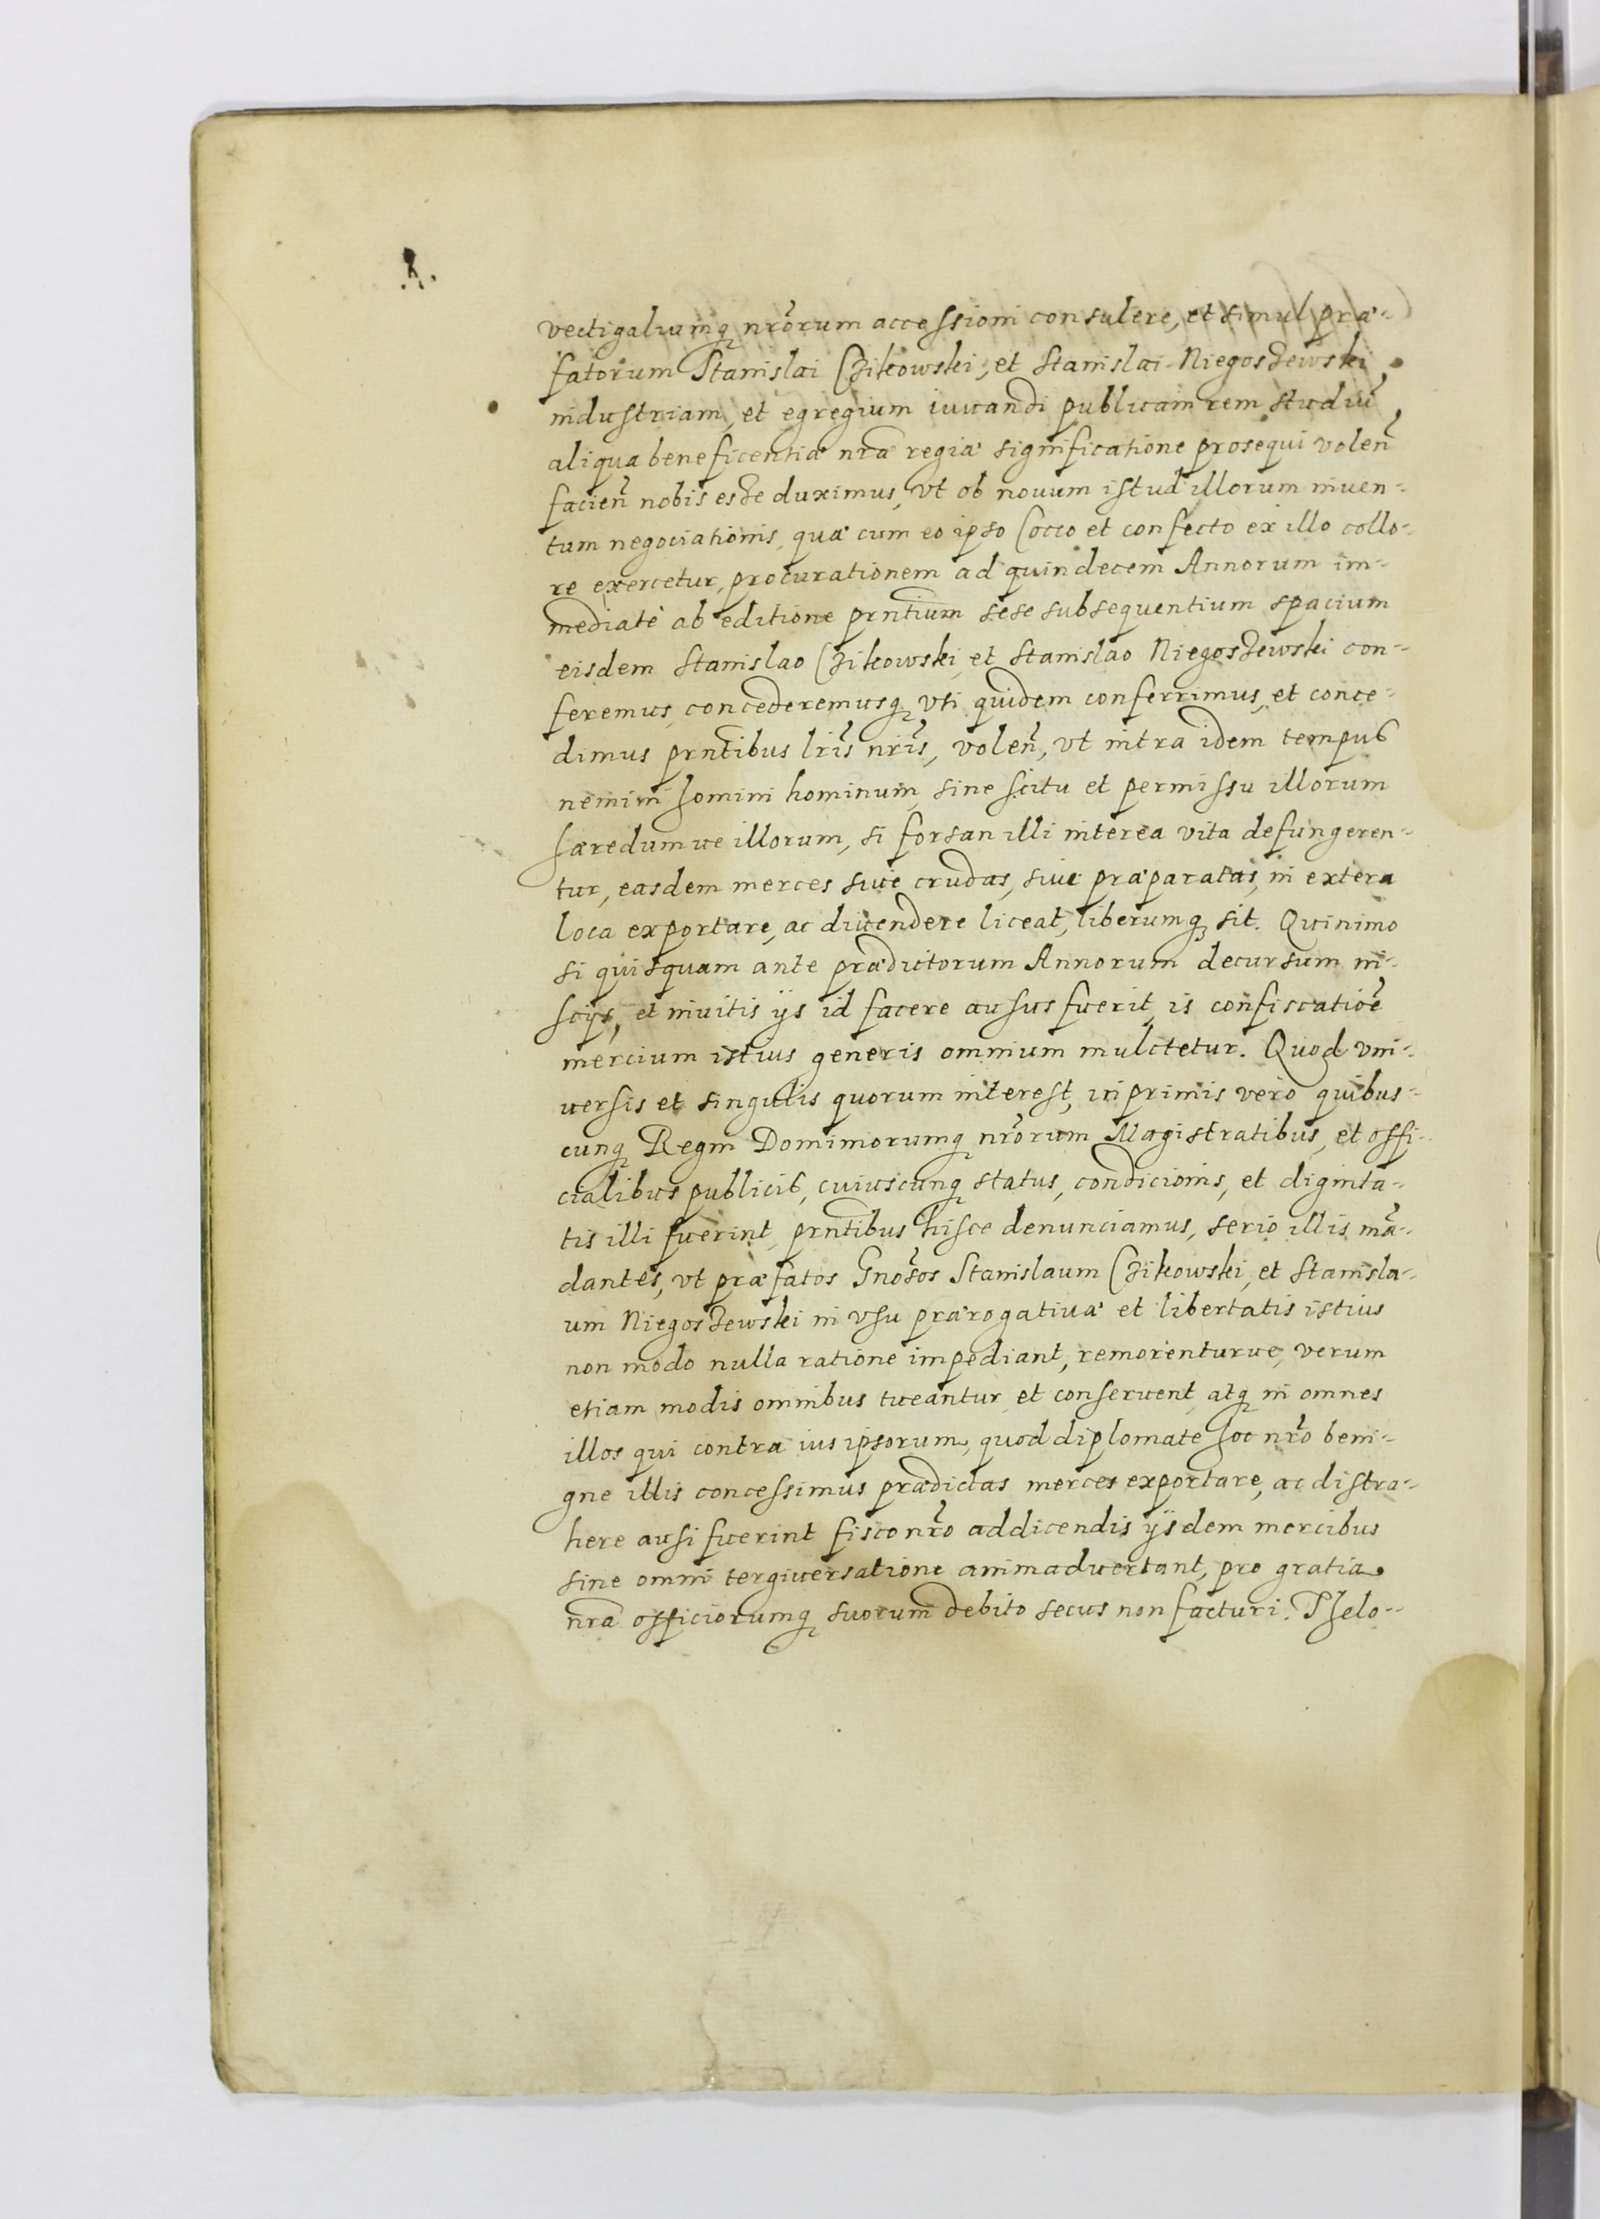 vectigaliumq̨ nrõrum accessioni consulere, et simul præ-
fatorum Stanislai Czikowski, et Stanislai Niegoszewski
industriam, et egregium iuuandi publicam rem studiũ,
aliqua beneficentiæ nrã regiæ significatione prosequi volen̄
facien̄ nobis esse duximus, vt ob nouum istud illorum inuen-
tum negociationis, quæ cum eo ipso Cocco et confecto ex illo collo-
re exercetur, procurationem ad quindecem Annorum im-
mediatè ab editione prñtium sese subsequentium spacium
eisdem Stanislao Czikowski, et Stanislao Niegoszewski con-
feremus, concederemusq̨ vti quidem conferrimus, et conce-
dimus prñtibus lrĩs nrĩs, volen̄, vt intra idem tempus
nemini homini hominum, sine scitu et permissu illorum
hæredumue illorum, si forsan illi interea vita defungeren-
tur, easdem merces siue crudas, siue præparatas, in extera
loca exportare, ac diuendere liceat, liberumq̨ sit. Quinimo
si quisquam ante prædictorum Annorum decursum in-
scijs, et inuitis ijs id facere ausus fuerit, is confiscatiõe
mercium istius generis omnium mulctetur. Quod vni-
uersis et singulis quorum interest, in primis verò quibus-
cunq̨ Regni Dominiorumq̨ nrõrum Magistratibus, et offi-
cialibus publicis, cuiuscunq̨ status, condicionis, et dignita-
tis illi fuerint, prñtibus hisce denunciamus, seriò illis mã-
dantes, vt præfatos Gnõsos Stanislaum Czikowski, et Stanisla-
um Niegoszewski in vsu prærogatiuæ et libertatis istius
non modo nulla ratione impediant, remorenturue, verum
etiam modis omnibus tueantur, et conseruent, atq̨ in omnes
illos qui contra ius ipsorum, quod diplomate hoc nrõ beni-
gne illis concessimus prædictas merces exportare, ac distra-
here ausi fuerint fisco nrõ addicendis ijsdem mercibus
sine omni tergiuersatione animaduertant, pro gratia
nrã officiorumq̨ suorum debito secus non facturi. Thelo-